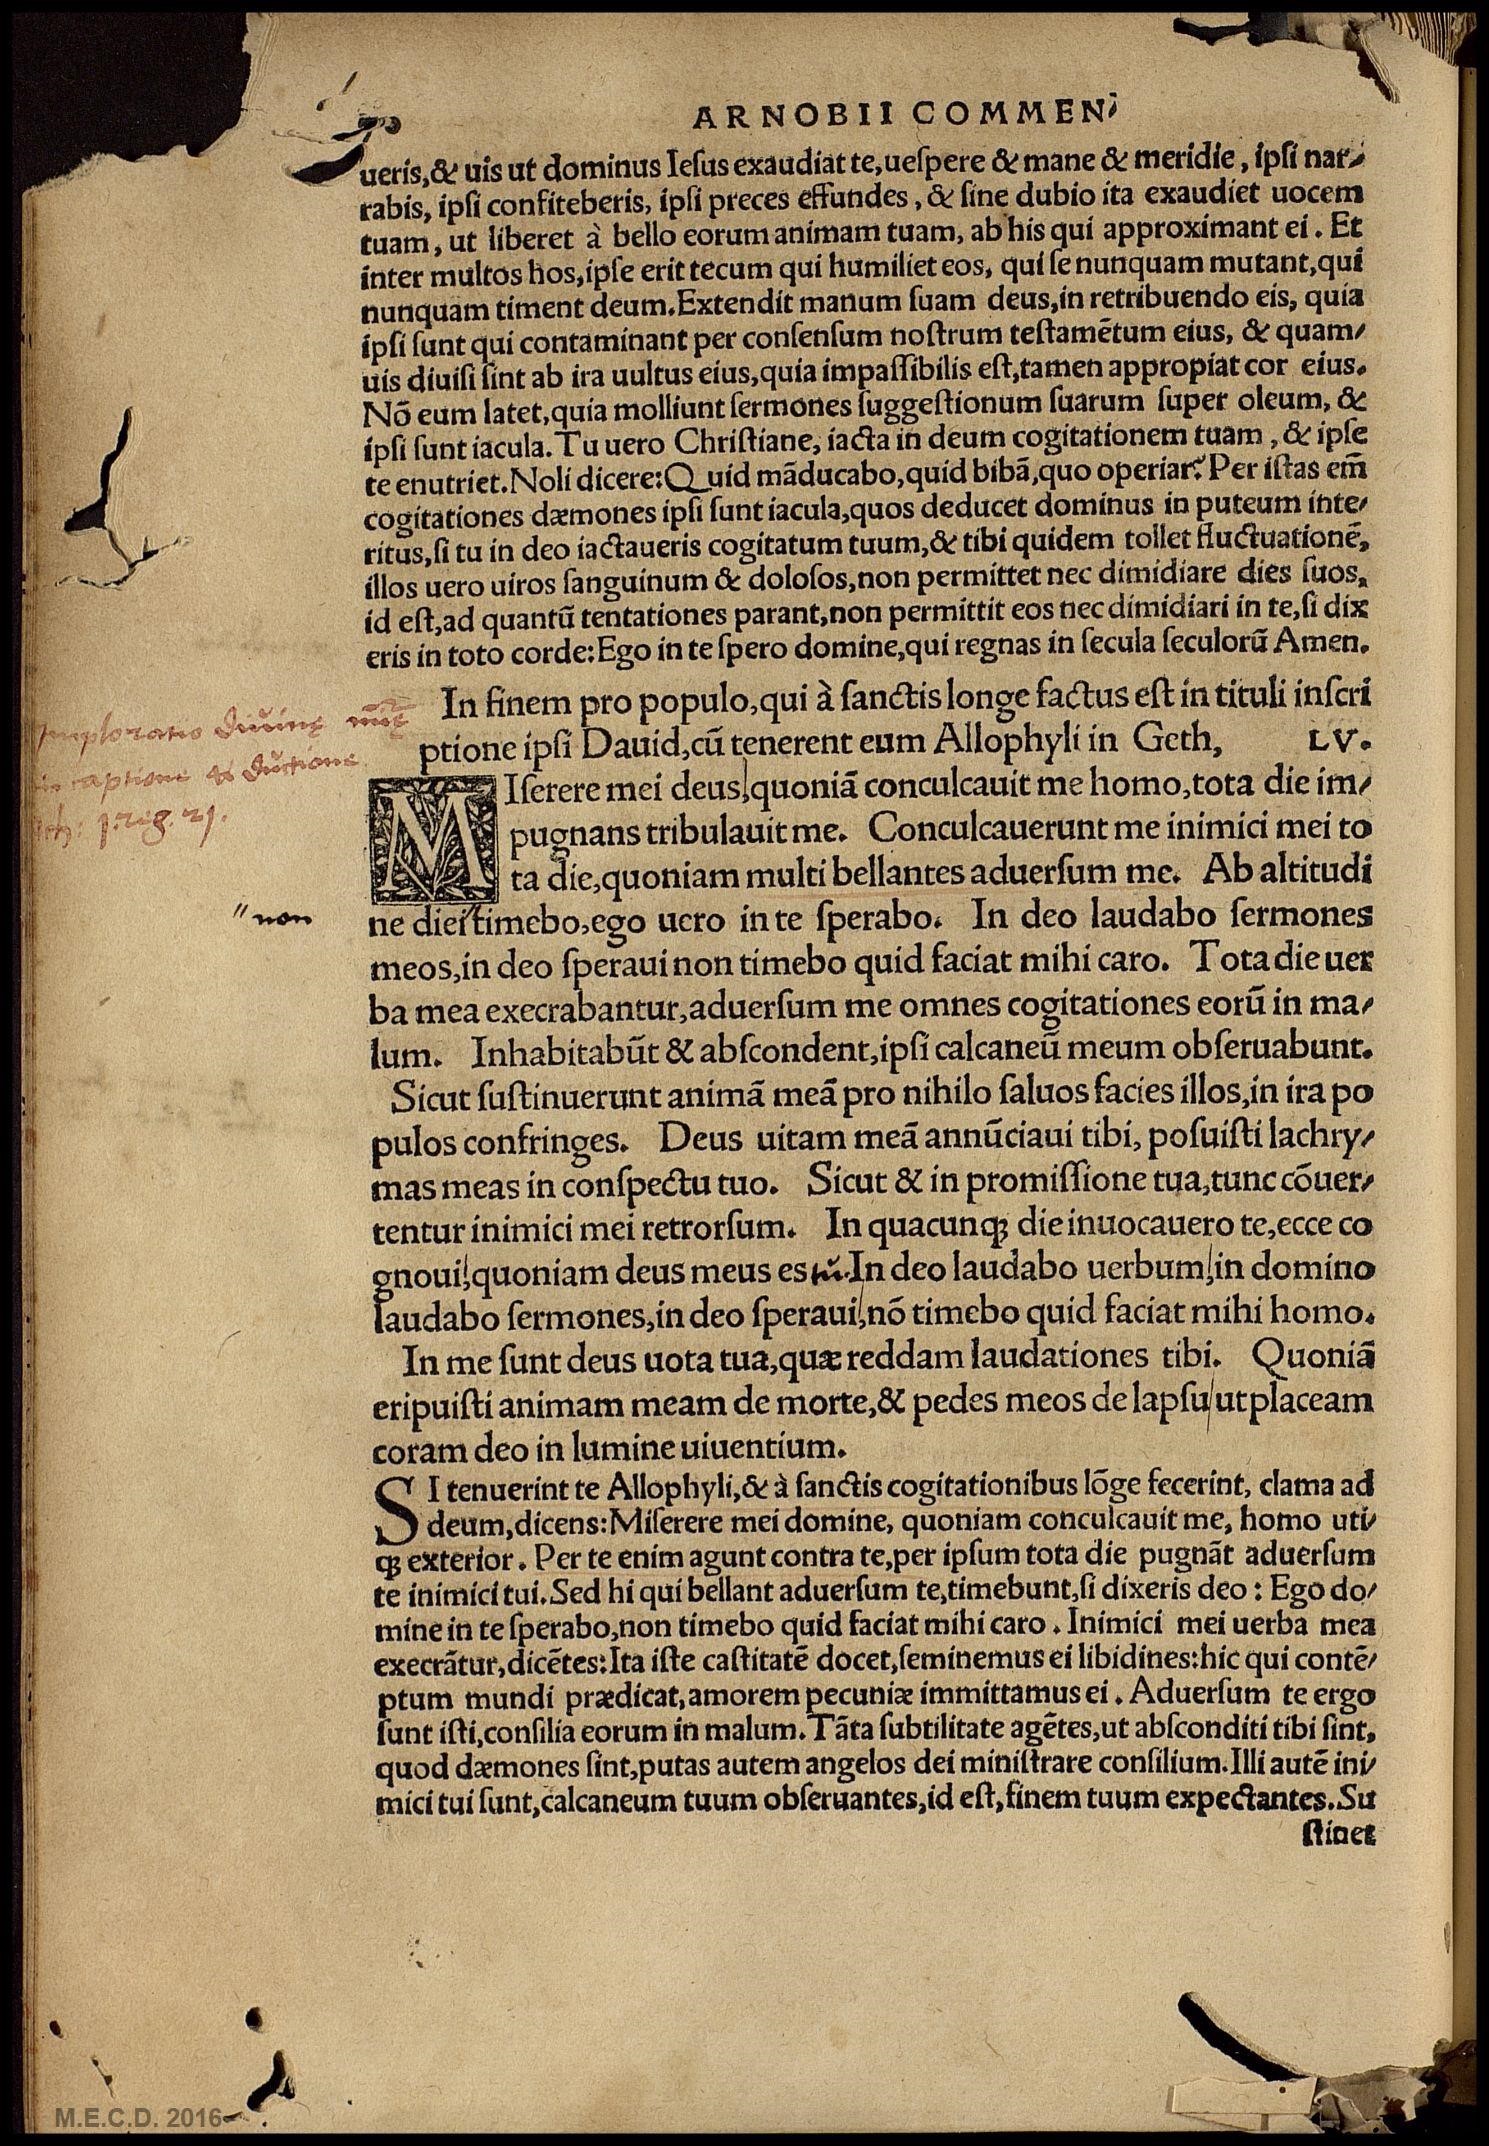 ARNOBII COMMEN/
ueris,& uis ut dominus Iesus exaudiat te,uespere & mane & meridie, ipsi nar/
rabis, ipsi confiteberis, ipsi preces effundes, & sine dubio ita exaudiet uocem
tuam, ut liberet à bello eorum animam tuam, ab his qui approximant ei. Et
inter multos hos,ipse erit tecum qui humiliet eos, qui se nunquam mutant,qui
nunquam timent deum.Extendit manum suam deus,in retribuendo eis, quia
ipsi sunt qui contaminant per consensum nostrum testamētum eius, & quam/
uis diuisi sint ab ira uultus eius,quia impassibilis est,tamen appropiat cor eius.
Nō eum latet,quia molliunt sermones suggestionum suarum super oleum, &
ipsi sunt iacula. Tu uero Christiane, iacta in deum cogitationem tuam, & ipse
te enutriet. Noli dicere: Quid māducabo,quid bibā,quo operiar? Per istas em̄
cogitationes dæmones ipsi sunt iacula,quos deducet dominus in puteum inte/
ritus,si tu in deo iactaueris cogitatum tuum,& tibi quidem tollet fluctuationē,
illos uero uiros sanguinum & dolosos,non permittet nec dimidiare dies suos,
id est,ad quantū tentationes parant,non permittit eos nec dimidiari in te,si dix
eris in toto corde: Ego in te spero domine,qui regnas in secula seculorū Amen.
In finem pro populo,qui à sanctis longe factus est in tituli inscri
ptione ipsi Dauid,cū tenerent eum Allophyli in Geth, LV.
Imploratio diuinę
captione
1. reg. 21.
MIserere mei deus,quoniā conculcauit me homo,tota die im/
pugnans tribulauit me. Conculcauerunt me inimici mei to
ta die,quoniam multi bellantes aduersum me. Ab altitudi
" non
ne diei timebo,ego uero in te sperabo. In deo laudabo sermones
meos,in deo speraui non timebo quid faciat mihi caro. Tota die uer
ba mea execrabantur,aduersum me omnes cogitationes eorū in ma/
lum. Inhabitabūt & abscondent,ipsi calcaneū meum obseruabunt.
Sicut sustinuerunt animā meā pro nihilo saluos facies illos,in ira po
pulos confringes. Deus uitam meā annūciaui tibi, posuisti lachry/
mas meas in conspectu tuo. Sicut & in promissione tua,tunc cōuer/
tentur inimici mei retrorsum. In quacunq; die inuocauero te,ecce co
gnoui,quoniam deus meus es tu. In deo laudabo uerbum,in domino
laudabo sermones,in deo speraui,nō timebo quid faciat mihi homo.
In me sunt deus uota tua,quæ reddam laudationes tibi. Quoniā
eripuisti animam meam de morte,& pedes meos de lapsu ut placeam
coram deo in lumine uiuentium.
SI tenuerint te Allophyli,& à sanctis cogitationibus lōge fecerint, clama ad
deum,dicens: Miserere mei domine, quoniam conculcauit me, homo uti/
q; exterior. Per te enim agunt contra te,per ipsum tota die pugnāt aduersum
te inimici tui. Sed hi qui bellant aduersum te,timebunt,si dixeris deo: Ego do/
mine in te sperabo,non timebo quid faciat mihi caro. Inimici mei uerba mea
execrātur,dicētes: Ita iste castitatē docet,seminemus ei libidines: hic qui contē/
ptum mundi prædicat,amorem pecuniæ immittamus ei. Aduersum te ergo
sunt isti,consilia eorum in malum. Tāta subtilitate agētes,ut absconditi tibi sint,
quod dæmones sint,putas autem angelos dei ministrare consilium. Illi autē ini/
mici tui sunt,calcaneum tuum obseruantes,id est,finem tuum expectantes. Su
stinet
M.E.C.D. 2016